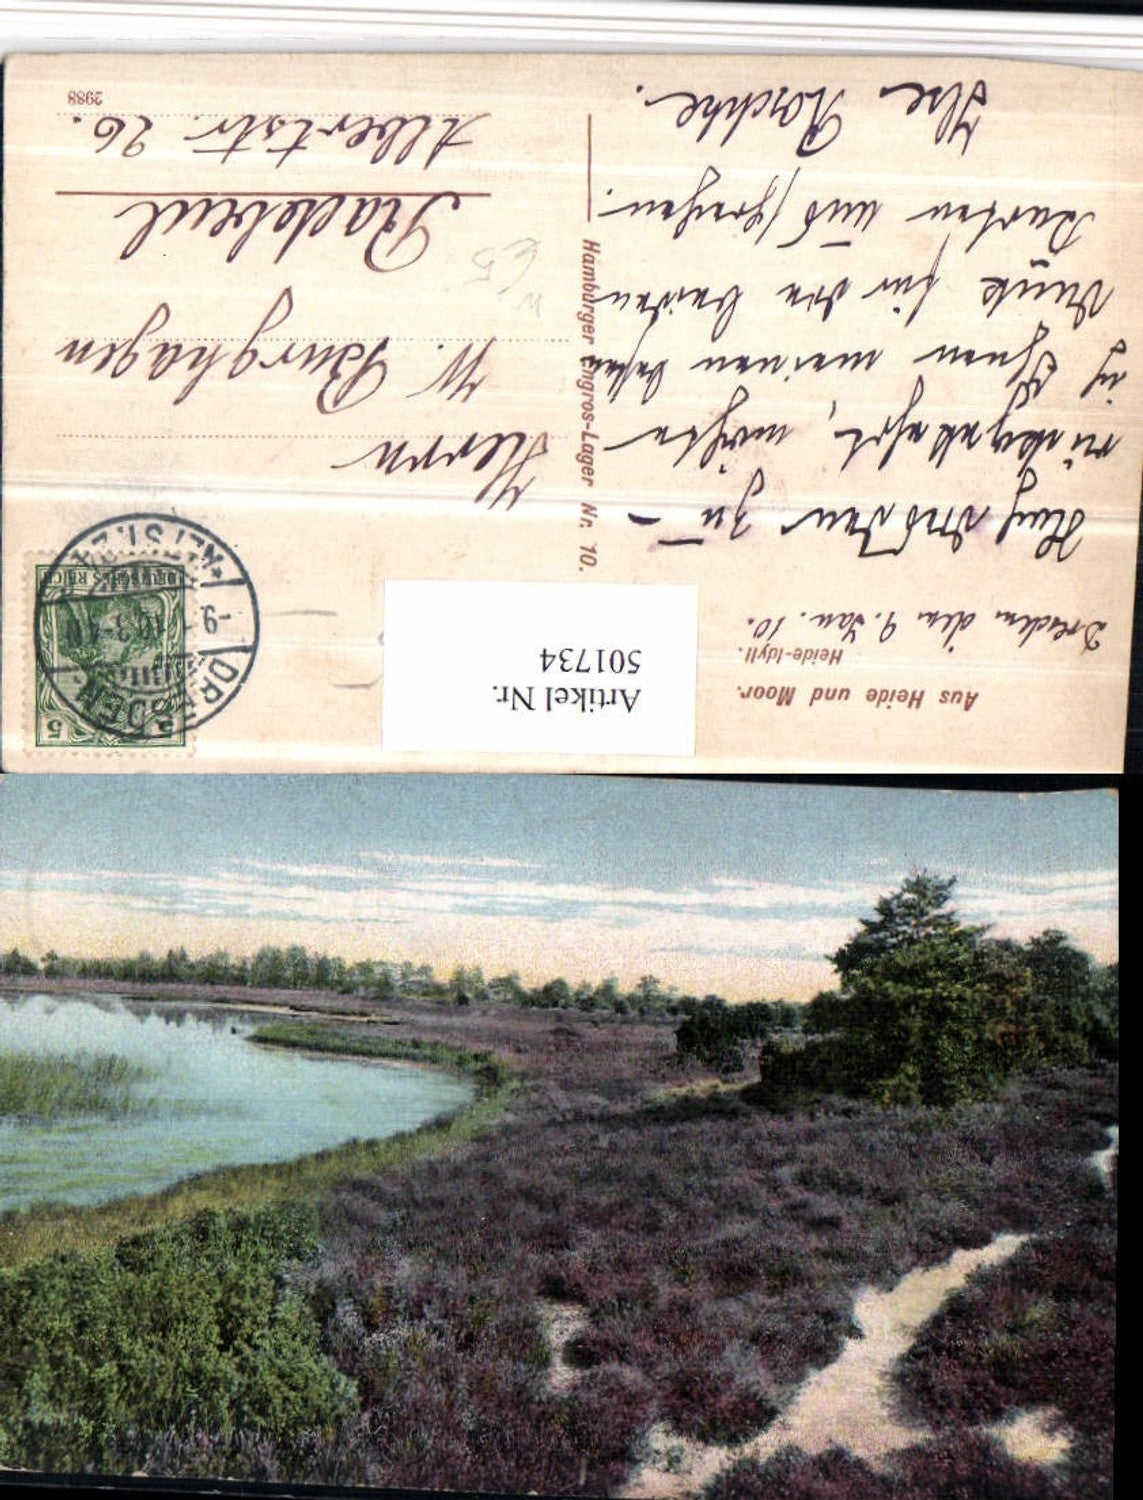 Aus Heide und Moor.
Heide-Idyll.
Dresden, den 9. Jan. 10.
Nach Dresden zu-
rückgekehrt, möchte
ich Ihnen meinen besten
Dank für die beiden
Karten aussprechen.
Ilse Raschke.
Hamburger Engros-Lager Nr. 10.
Artikel Nr.
501734
DRESDEN
DEUTSCHES REICH
5
Herrn
W. Burghagen
Radebeul
Albertstr. 26.
2988